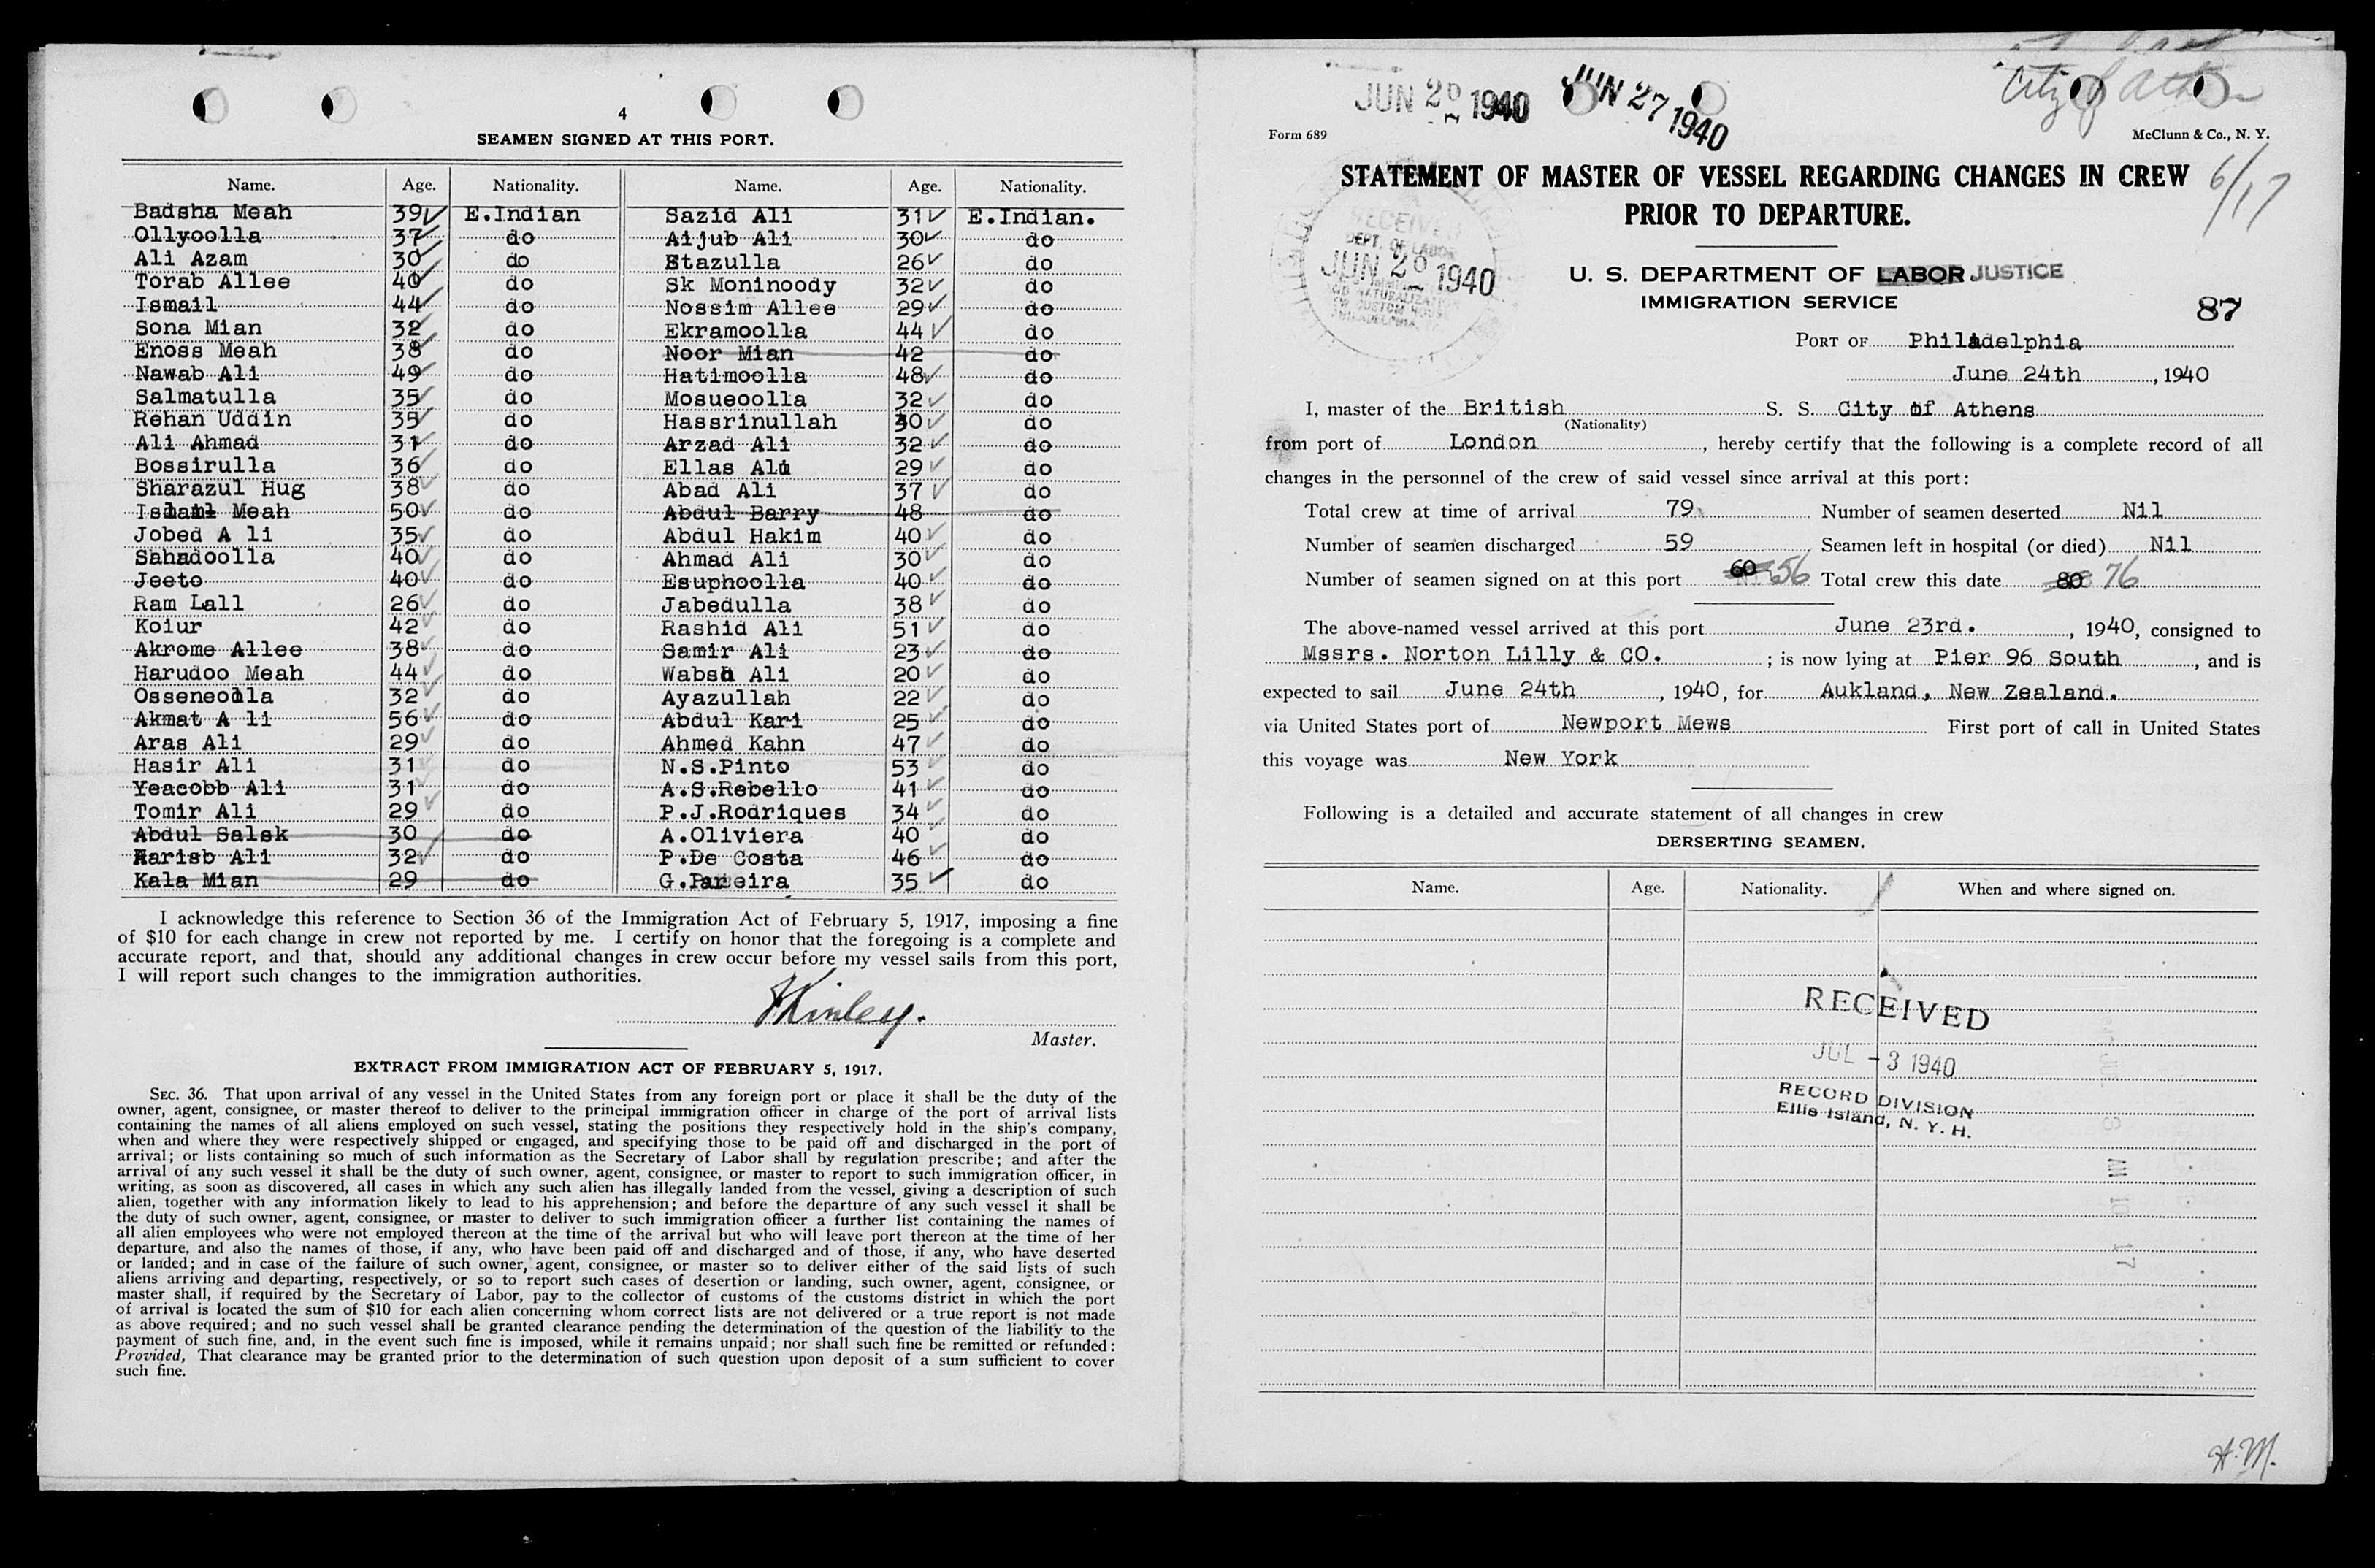 4
SEAMEN SIGNED AT THIS PORT.
Name. Age. Nationality. Name. Age. Nationality.
Badsha Meah 39 E.Indian Sazid Ali 31 E.Indian.
Ollyoolla 37 do Aijub Ali 30 do
Ali Azam 30 do Etazulla 26 do
Torab Allee 40 do Sk Moninoody 32 do
Ismail 44 do Nossim Allee 29 do
Sona Mian 32 do Ekramoolla 44 do
Enoss Meah 38 do Noor Mian 42 do
Nawab Ali 49 do Hatimoolla 48 do
Salmatulla 35 do Mosueoolla 32 do
Rehan Uddin 35 do Hassrinullah 30 do
Ali Ahmad 31 do Arzad Ali 32 do
Bossirulla 36 do Ellas Ali 29 do
Sharazul Hug 38 do Abad Ali 37 do
Meah 50 do Abdul Barry 48 do
Jobed A li 35 do Abdul Hakim 40 do
Sahadoolla 40 do Ahmad Ali 30 do
Jeeto 40 do Esuphoolla 40 do
Ram Lall 26 do Jabedulla 38 do
Koiur 42 do Rashid Ali 51 do
Akrome Allee 38 do Samir Ali 23 do
Harudoo Meah 44 do Ali 20 do
Osseneolla 32 do Ayazullah 22 do
Akmat A li 56 do Abdul Kari 25 do
Aras Ali 29 do Ahmed Kahn 47 do
Hasir Ali 31 do N.S.Pinto 53 do
Yeacobb Ali 31 do A.S.Rebello 41 do
Tomir Ali 29 do P.J.Rodriques 34 do
Abdul Salek 30 do A.Oliviera 40 do
Ali 32 do P.De Costa 46 do
Kala Mian 29 do G.Pareira 35 do
I acknowledge this reference to Section 36 of the Immigration Act of February 5, 1917, imposing a fine
of $10 for each change in crew not reported by me. I certify on honor that the foregoing is a complete and
accurate report, and that, should any additional changes in crew occur before my vessel sails from this port,
I will report such changes to the immigration authorities.
Kinley.
Master.
EXTRACT FROM IMMIGRATION ACT OF FEBRUARY 5, 1917.
SEC. 36. That upon arrival of any vessel in the United States from any foreign port or place it shall be the duty of the
owner, agent, consignee, or master thereof to deliver to the principal immigration officer in charge of the port of arrival lists
containing the names of all aliens employed on such vessel, stating the positions they respectively hold in the ship's company,
when and where they were respectively shipped or engaged, and specifying those to be paid off and discharged in the port of
arrival; or lists containing so much of such information as the Secretary of Labor shall by regulation prescribe; and after the
arrival of any such vessel it shall be the duty of such owner, agent, consignee, or master to report to such immigration officer, in
writing, as soon as discovered, all cases in which any such alien has illegally landed from the vessel, giving a description of such
alien, together with any information likely to lead to his apprehension; and before the departure of any such vessel it shall be
the duty of such owner, agent, consignee, or master to deliver to such immigration officer a further list containing the names of
all alien employees who were not employed thereon at the time of the arrival but who will leave port thereon at the time of her
departure, and also the names of those, if any, who have been paid off and discharged and of those, if any, who have deserted
or landed; and in case of the failure of such owner, agent, consignee, or master so to deliver either of the said lists of such
aliens arriving and departing, respectively, or so to report such cases of desertion or landing, such owner, agent, consignee, or
master shall, if required by the Secretary of Labor, pay to the collector of customs of the customs district in which the port
of arrival is located the sum of $10 for each alien concerning whom correct lists are not delivered or a true report is not made
as above required; and no such vessel shall be granted clearance pending the determination of the question of the liability to the
payment of such fine, and, in the event such fine is imposed, while it remains unpaid; nor shall such fine be remitted or refunded:
Provided, That clearance may be granted prior to the determination of such question upon deposit of a sum sufficient to cover
such fine.
JUN 26 1940 JUN 27 1940
City of Athen
Form 689 McClunn & Co., N. Y.
6/17
STATEMENT OF MASTER OF VESSEL REGARDING CHANGES IN CREW
PRIOR TO DEPARTURE.
RECEIVED
DEPT. OF LABOR
JUN 26 1940
U. S. DEPARTMENT OF LABOR JUSTICE
IMMIGRATION SERVICE
87
PORT OF Philadelphia
June 24th, 1940
I, master of the British S. S. City of Athens
(Nationality)
from port of London, hereby certify that the following is a complete record of all
changes in the personnel of the crew of said vessel since arrival at this port:
Total crew at time of arrival 79 Number of seamen deserted Nil
Number of seamen discharged 59 Seamen left in hospital (or died) Nil
Number of seamen signed on at this port 60 56 Total crew this date 80 76
The above-named vessel arrived at this port June 23rd., 1940, consigned to
Mssrs. Norton Lilly & CO.; is now lying at Pier 96 South, and is
expected to sail June 24th, 1940, for Aukland, New Zealand.
via United States port of Newport Mews First port of call in United States
this voyage was New York
Following is a detailed and accurate statement of all changes in crew
DERSERTING SEAMEN.
Name. Age. Nationality. When and where signed on.
RECEIVED
JUL -3 1940
RECORD DIVISION
Ellis Island, N. Y. H.
H.M.